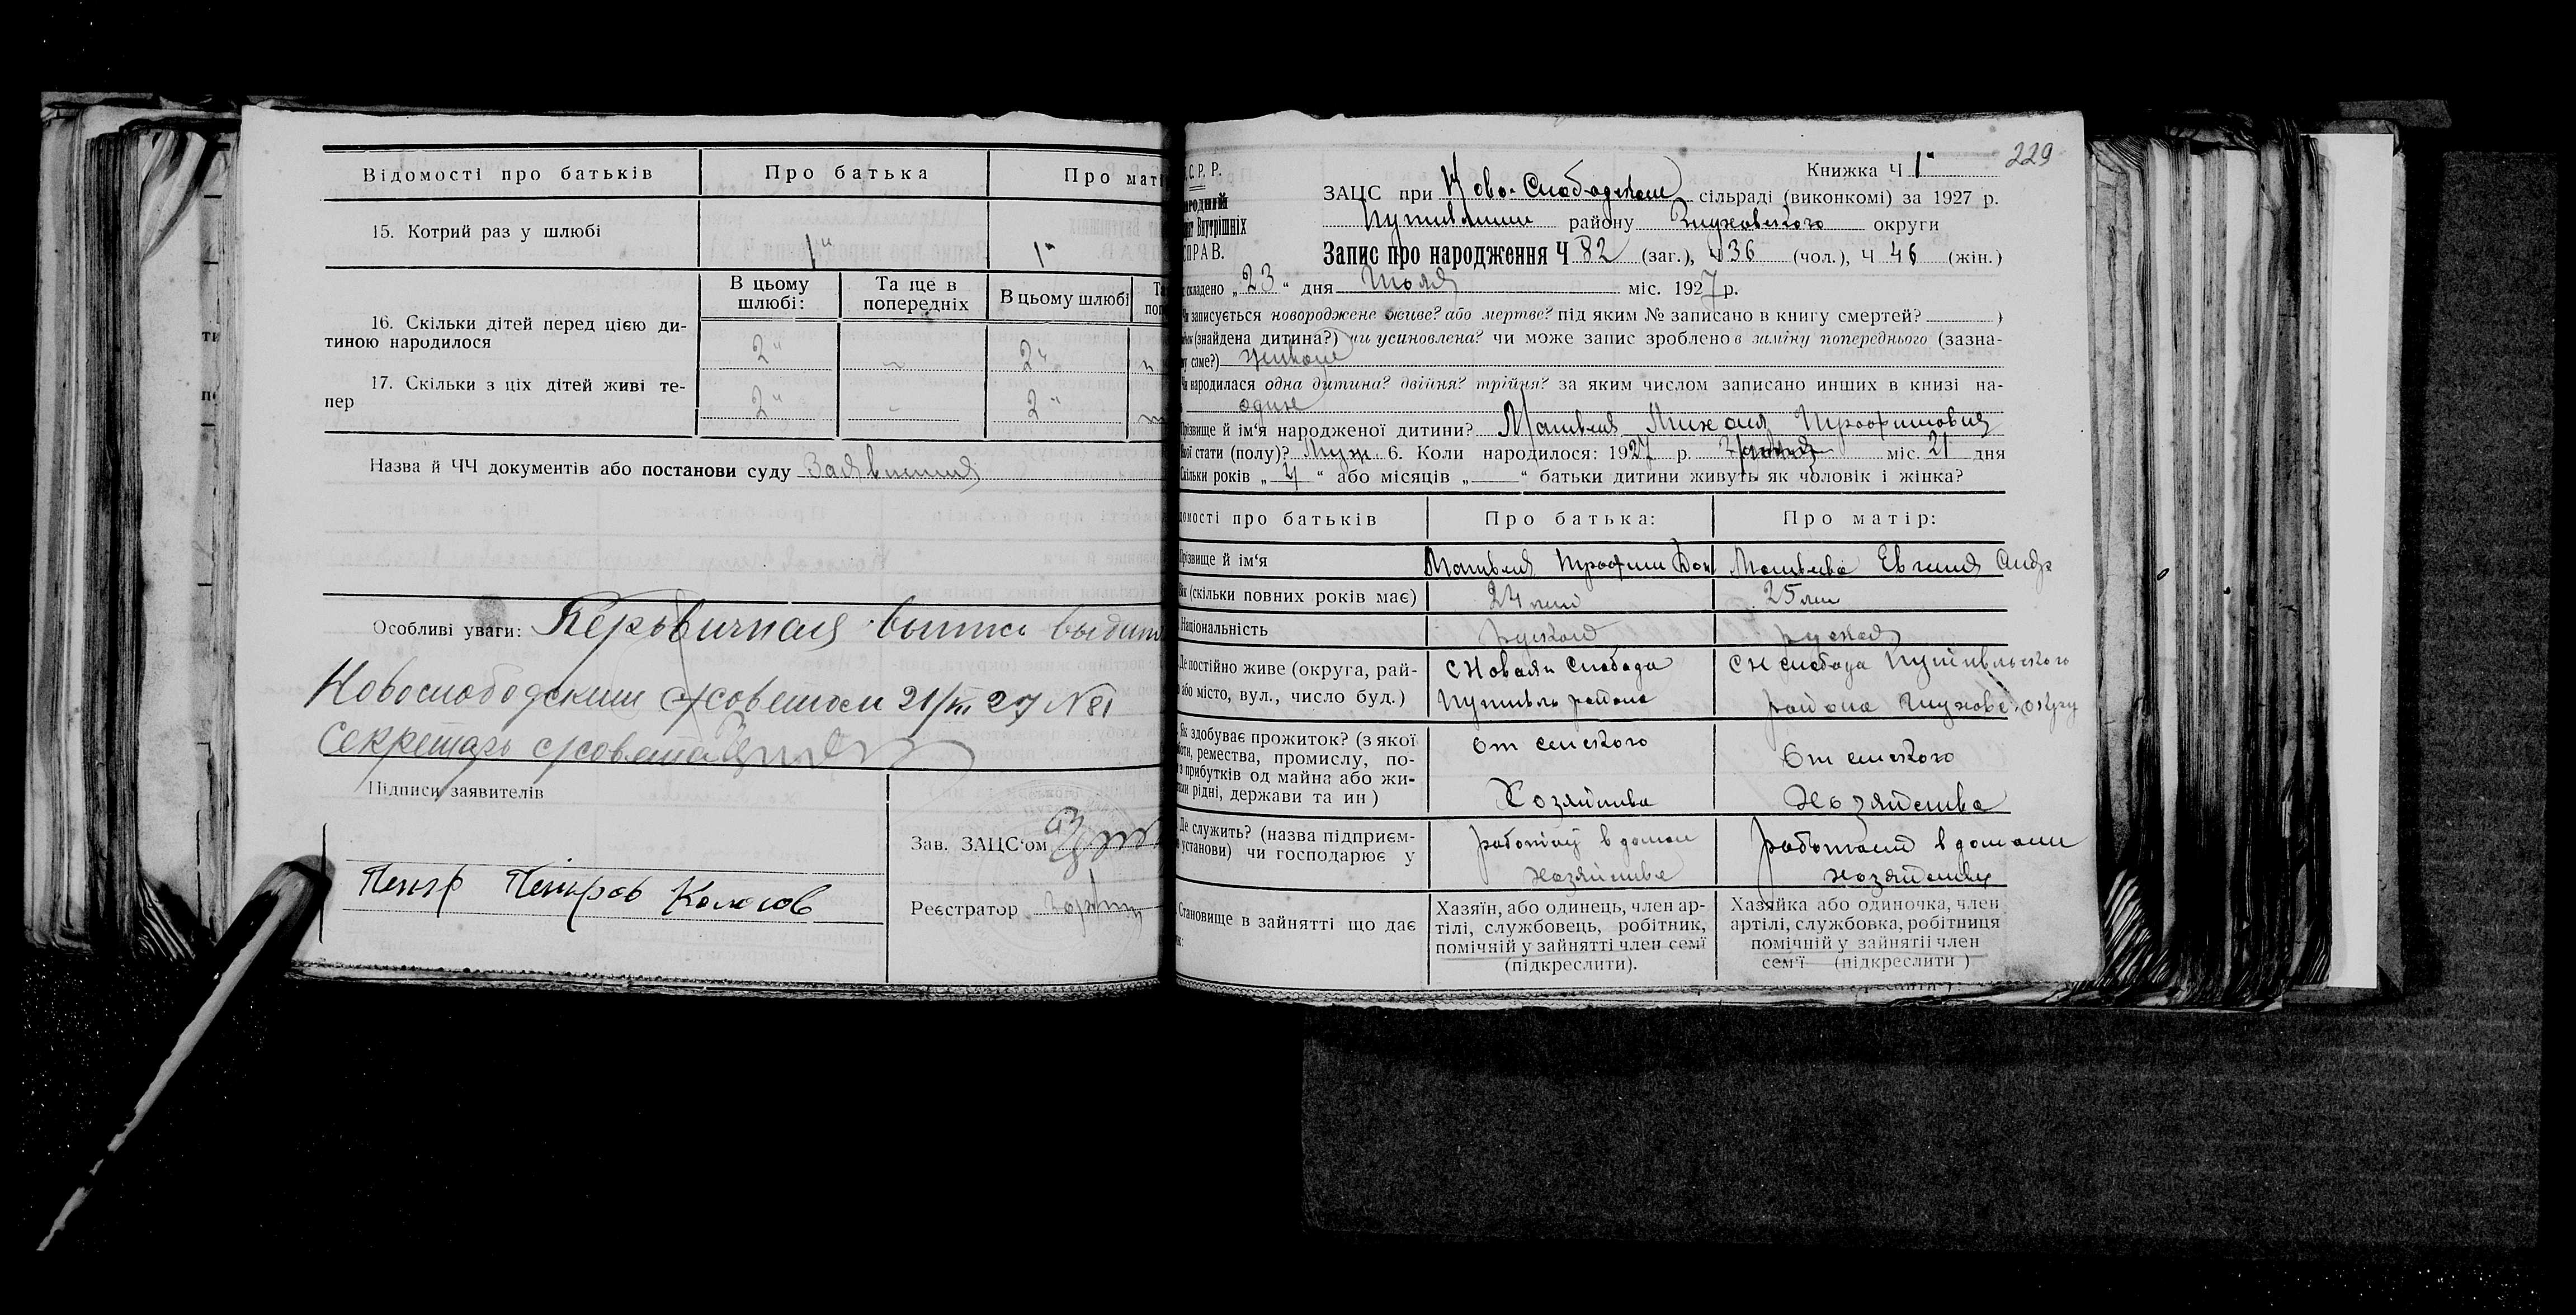 Відомості про батьків
Про батька
Про маті
15. Котрий раз у шлюбі
1"
1"
В цьому шлюбі:
Та ще в попередніх
В цьому шлюбі
16. Скільки дітей перед цією ди-
тиною народилося
2"
2"
17. Скільки з ціх дітей живі те-
пер
2"
2"
Назва й ЧЧ документів або постанови суду
Особливі уваги: Первичная выпись
Новослободским с/советом 21/VII 27 №81
Секретарь с/совета
Підписи заявителів
Петр Петров Колосов
Зав. ЗАЦС'ом
Реєстратор
229
Книжка Ч 1"
С. Р. Р.
ЗАЦС при Ново-Слободском сільраді (виконкомі) за 1927 р.
Внутрішніх
району Глуховского округи
СПРАВ.
Запис про народження Ч 82 (заг.), Ч 36 (чол.), Ч 46 (жін.)
складено „23“ дня Июля міс. 1927 р.
Чи записується новороджене живе? або мертве? під яким № записано в книгу смертей? )
(знайдена дитина?) чи усиновлена? чи може запис зроблено в заміну попереднього (зазна-
саме?) живой
Чи народилася одна дитина? двійня? трійня? за яким числом записано инших в книзі на-
один
Прізвище й ім'я народженої дитини? Матвея Михаил Трофимович
Якої стати (полу)? Муж. 6. Коли народилося: 1927 р. міс. 21 дня
Скільки років „4“ або місяців „ “ батьки дитини живуть як чоловік і жінка?
домості про батьків
Про батька:
Про матір:
Прізвище й ім'я
Трофим
Андр
Вік (скільки повних років має)
24 лет
25 лет
Національність
руской
руская
Де постійно живе (округа, рай-
або місто, вул., число буд.)
С Новая Слобода
Путивль района
С Н слобода Путивльского
района Глухов округу
Як здобуває прожиток? (з якої
ремества, промислу, по-
з прибутків од майна або жи-
рідні, держави та ин)
От сельского
Хозяйства
От сельского
Хозяйства
Де служить? (назва підприєм-
установи) чи господарює у
в домом
хозяйстве
работает в домом
хозяйстве
Становище в зайнятті що дає
Хазяїн, або одинець, член ар-
тілі, службовець, робітник,
помічній у зайнятті член семї
(підкреслити).
Хазяйка або одиночка, член
артілі, службовка, робітниця
помічній у зайнятіі член
сем'ї (підкреслити)